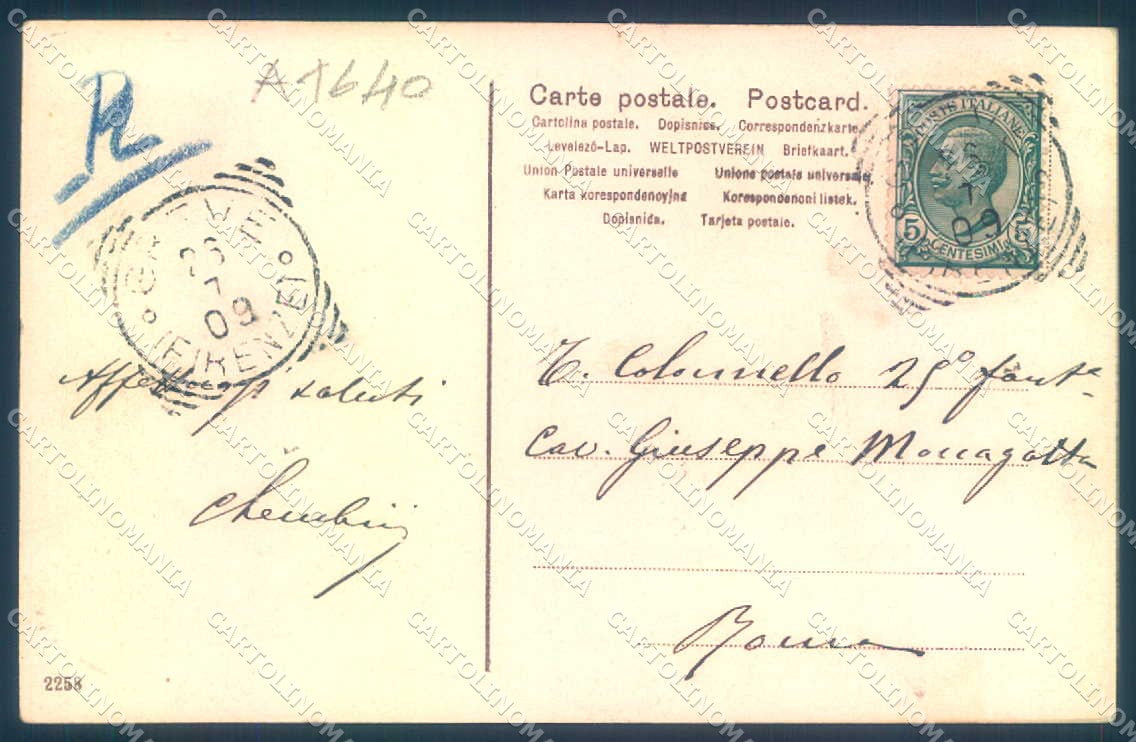 R
A 1640
Carte postale. Postcard.
Cartolina postale. Dopisnica. Correspondenzkarte.
Levelező-Lap. WELTPOSTVEREIN Briefkaart.
Union Postale universelle Unione postale universale
Karta korespondencyjna Korespondencni listek.
Dopisnida. Tarjeta postale.
POSTE ITALIANE
5 CENTESIMI 5
7
09
7
09
(FIRENZE)
Affettuosi saluti
Cherubini
T. Colonnello 25° fant.a
Cav. Giuseppe
Roma
2258
CARTOLINOMANIA